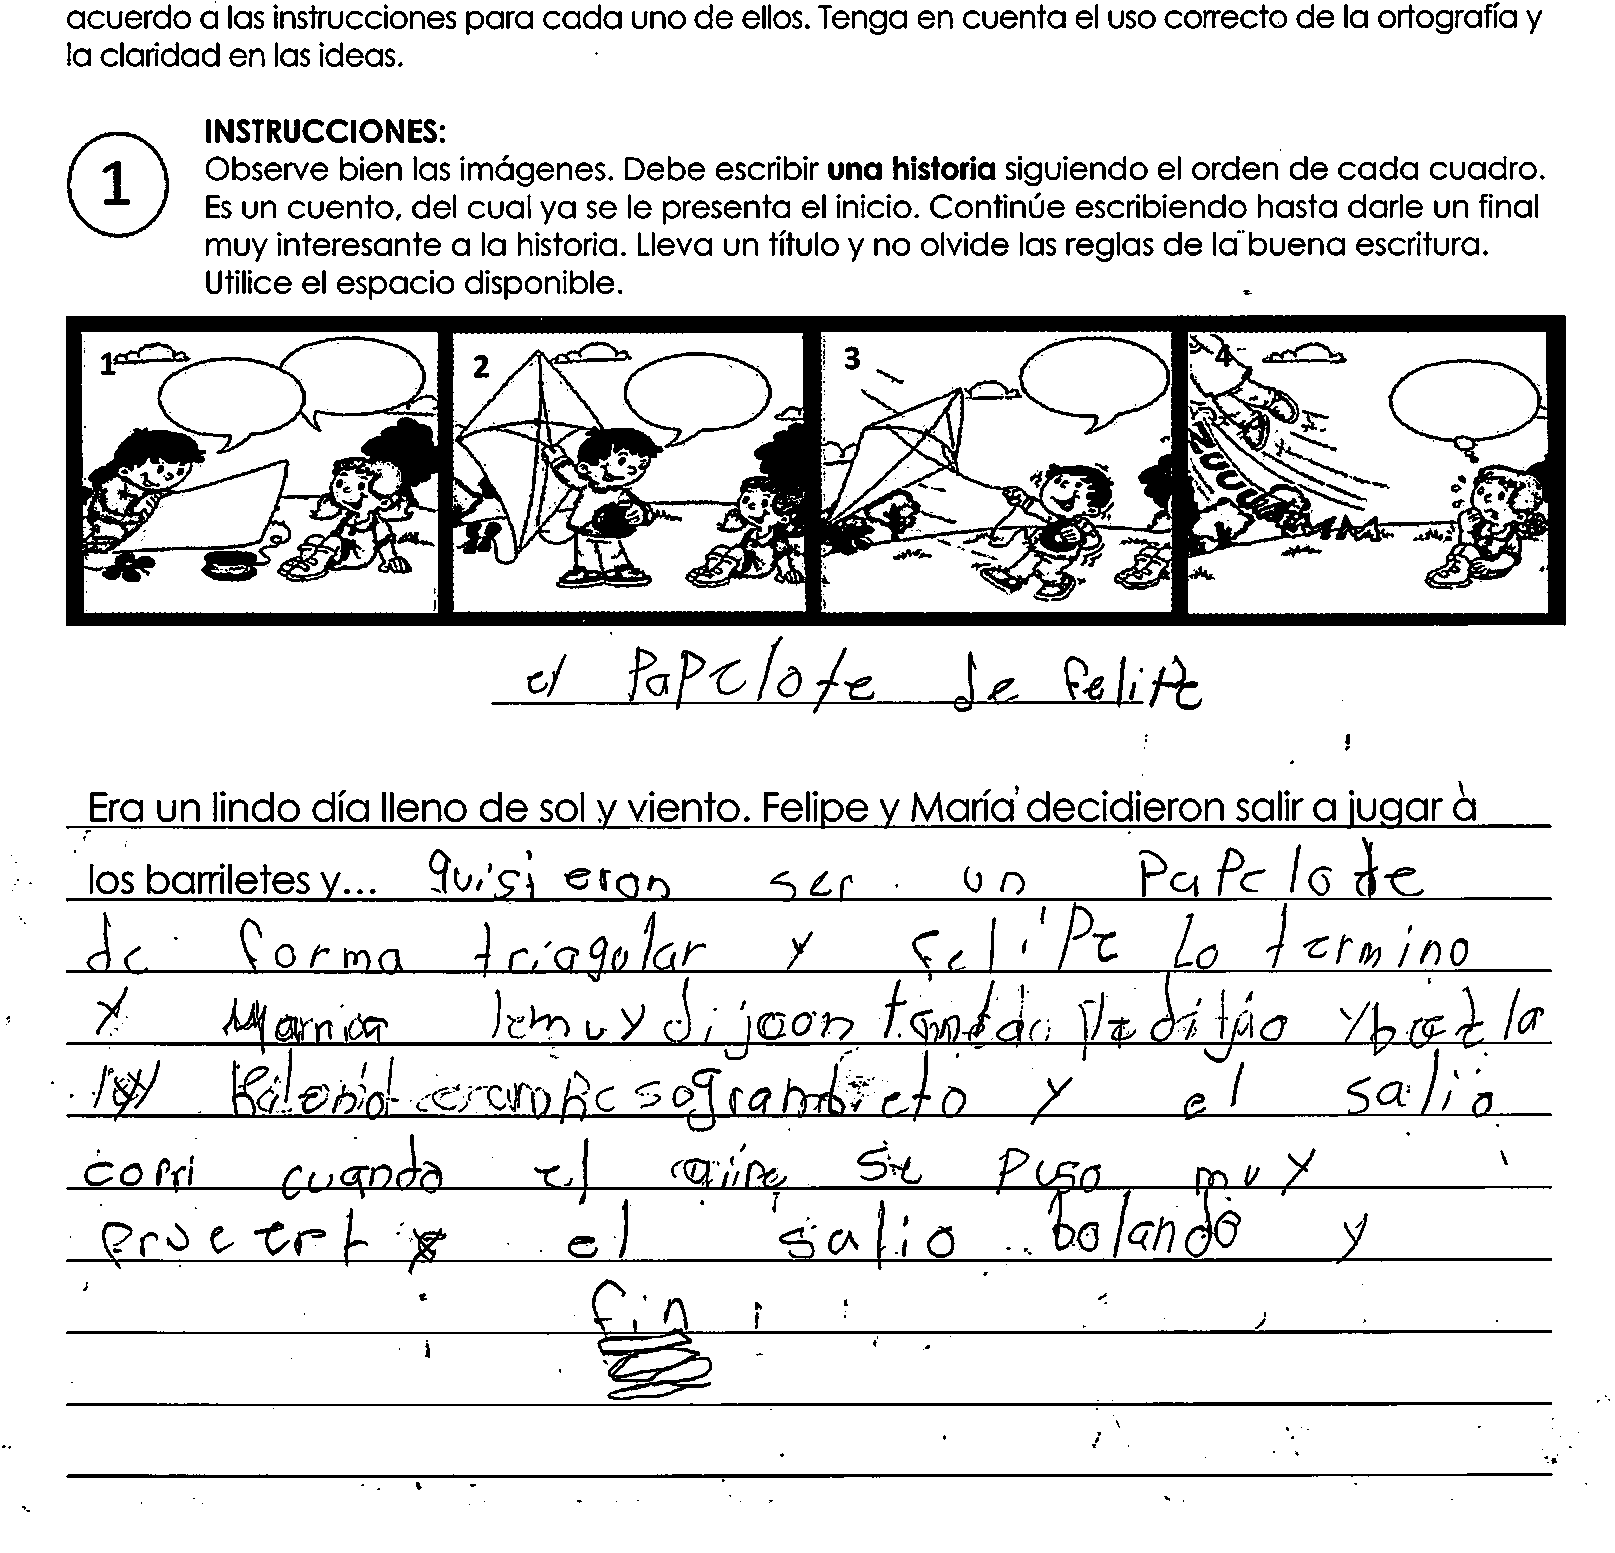 acuerdo a las instrucciones para cada uno de ellos. Tenga en cuenta el uso correcto de la ortografía y
la claridad en las ideas.
1
INSTRUCCIONES:
Observe bien las imágenes. Debe escribir una historia siguiendo el orden de cada cuadro.
Es un cuento, del cual ya se le presenta el inicio. Continúe escribiendo hasta darle un final
muy interesante a la historia. Lleva un título y no olvide las reglas de la buena escritura.
Utilice el espacio disponible.
1 2 3 4
el PaPelote de feliPe
Era un lindo día lleno de sol y viento. Felipe y María decidieron salir a jugar a
los barriletes y... quisieron ser un PaPelote
de forma triagular y feliPe Lo termino
y
y el salio
corri cuando el aire se Puso muy
el salio bolando y
fin